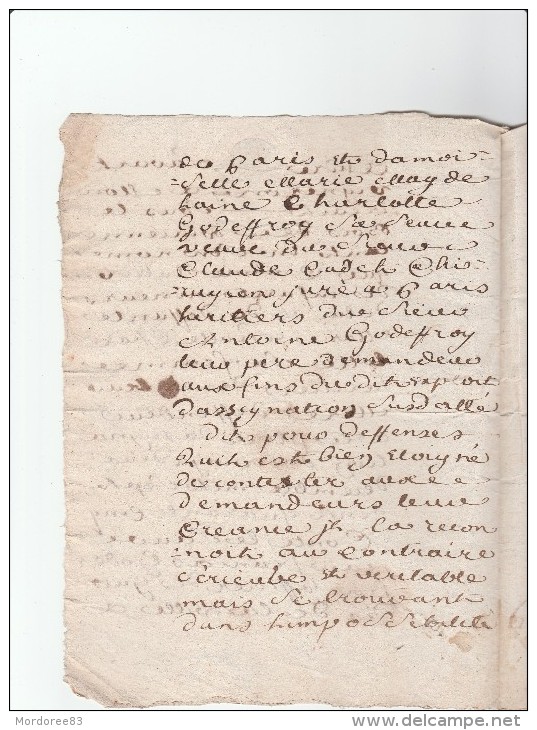 de Paris et damoi-
-selle Marie Magde
laine Charlotte
Godeffroy sa seur
veuve du sieur
Claude Cadet Chi-
rurgien juré a Paris
heritiers du sieur
Antoine Godeffroy
leur pere demandeur
aux fins du dit exploit
dassignation susdatté
dit pour deffenses
quil est bien eloigné
de contester aux
demandeurs leur
creance il la recon
-noit au contraire
serieuse et veritable
mais se trouvant
dans limpossibilité
Mordoree83
www.delcampe.net